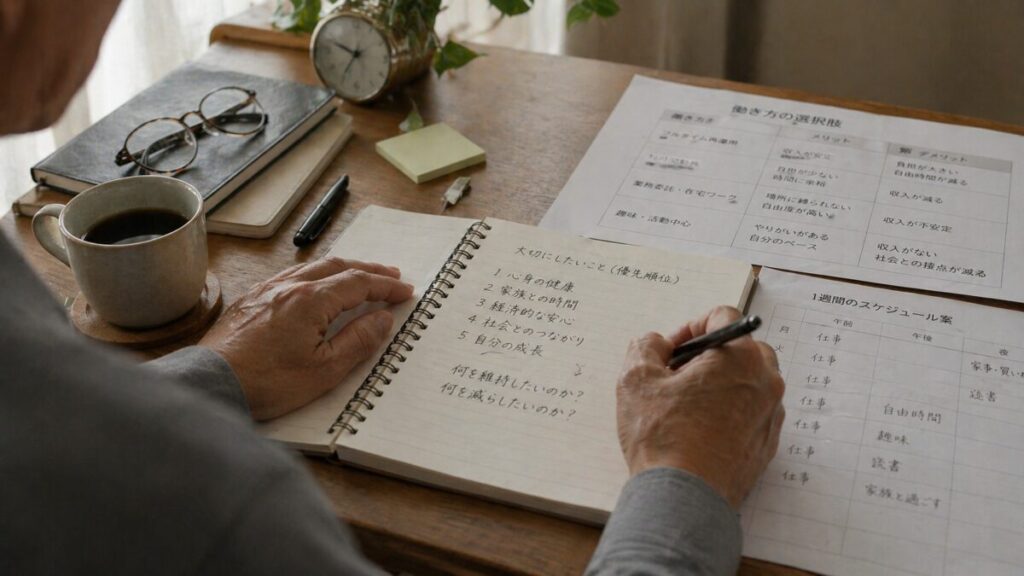 大切にしたいこと(優先順位)
1 心身の健康
2 家族との時間
3 経済的な安心
4 社会とのつながり
5 自分の成長
何を維持したいのか?
何を減らしたいのか?
働き方の選択肢
働き方 メリット デメリット
収入が安定 負担が大きい
自由時間が減る
負担が少ない 収入が減る
時間に余裕
業務委託・在宅ワーク 場所に縛られない 収入が不安定
自由度が高い
趣味・活動中心 やりがいがある 収入がない
自分のペース 社会との接点が減る
1週間のスケジュール案
午前 午後 夜
月 仕事 家事・買い
火 仕事 読書
仕事
仕事 自由時間
仕事 趣味
仕事 読書
仕事 家族と過ごす